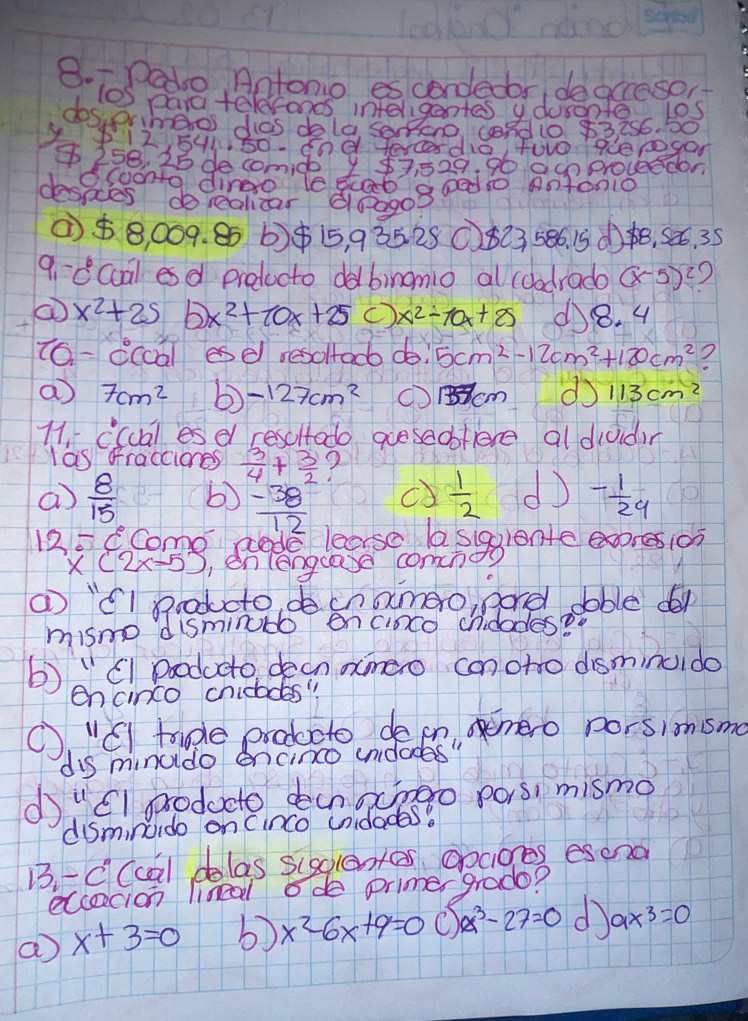 Scribe
8.- Pedro Antonio es vendedor de accesor-
ios para teléfonos inteligentes y durante los
dos primeros dias de la semana vendio $3,256.50
y $12,541.50. En el tercer dia, tuvo que pagar
$258.25 de comida y $7,529.90 a un proveedor.
¿cuánto dinero le quedo a pedro Antonio
despúes de realizar el pago?
a) $ 8,009.85 b) $ 15,935.28 c) $23,586.15 d) $8,526,35
9.- ¿Cuál es el producto del binomio al cuadrado (x-5)²?
a) x²+25 b) x²+10x+25 c) x²-10x+25 d) 8.4
10.- ¿cuál es el resultado de: 5cm²-12cm²+120cm²?
a) 7cm² b) -127cm² c) 137cm d) 113cm²
11.- ¿cuál es el resultado que se obtiene al dividir
las fracciones 3/4 + 3/2?
a) 8/15 b) -38/12 c) 1/2 d) -1/24
12.- ¿Como puede leerse la siguiente expresión
x (2x-5), en lenguaje común?
a) "El producto, de un número, por el doble del
mismo disminuido en cinco unidades"
b) "El producto de un número con otro disminuido
en cinco unidades"
c) "El triple producto de un número por si mismo
disminuido en cinco unidades"
d) "El producto de un número por si mismo
disminuido en cinco unidades"
13.- ¿Cuál de las siguientes opciones es una
ecuación lineal o de primer grado?
a) x+3=0 b) x²-6x+9=0 c) x³-27=0 d) ax³=0